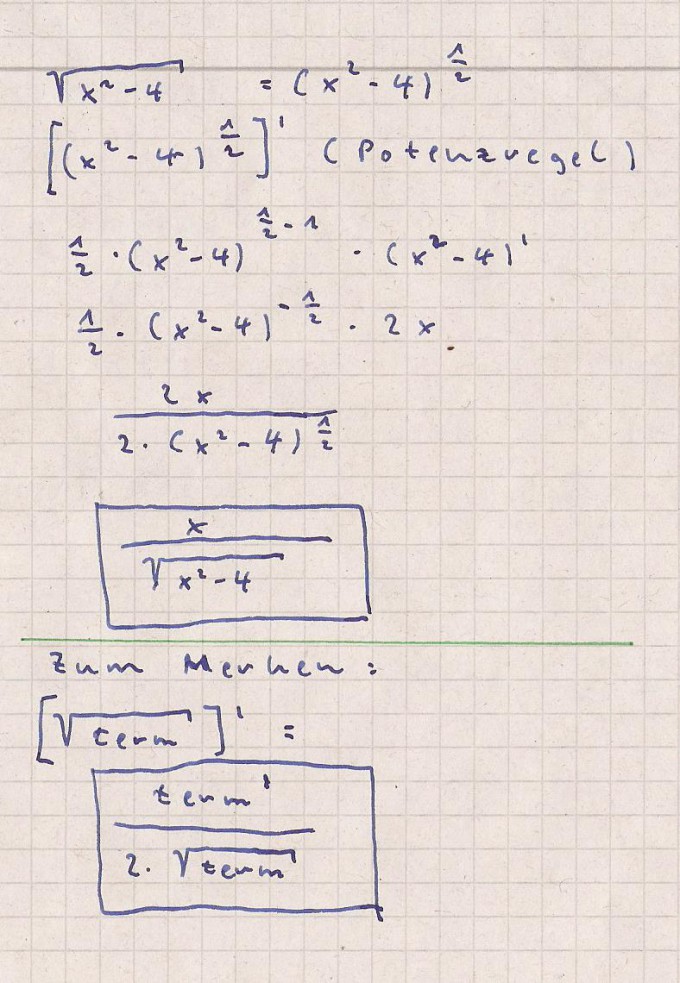 √(x² - 4) = (x² - 4)^(1/2)
[(x² - 4)^(1/2)]' (Potenzregel)
1/2 · (x² - 4)^(1/2 - 1) · (x² - 4)'
1/2 · (x² - 4)^(-1/2) · 2x
2x / (2 · (x² - 4)^(1/2))
x / √(x² - 4)
Zum Merken:
[√term]' =
term' / (2 · √term)